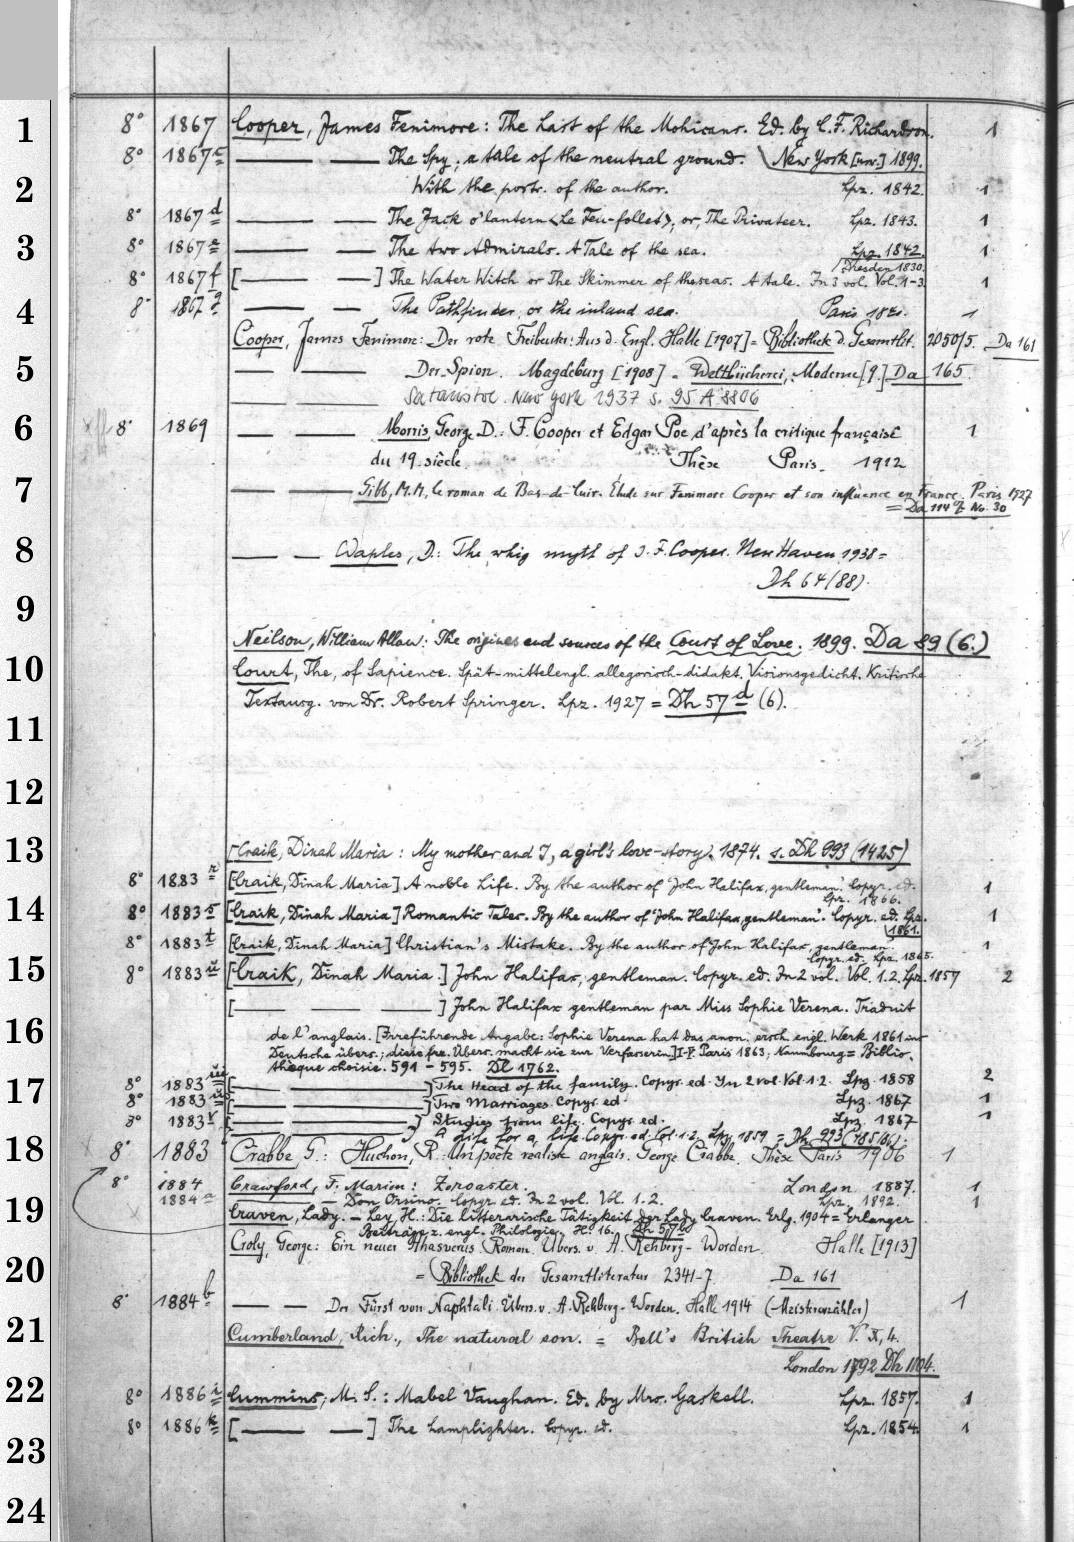 1 8° 1867 Cooper, James Fenimore: The Last of the Mohicans. Ed. by C. F. Richardson. 1
8° 1867c ——— —— The Spy; a tale of the neutral ground. New York [usw.] 1899.
2 With the portr. of the author. Lpz. 1842. 1
8° 1867d ——— —— The Jack o'lantern <Le Feu-follet>, or, The Privateer. Lpz. 1843. 1
3 8° 1867e ——— —— The two Admirals. A Tale of the sea. Lpz. 1842. 1
Dresden 1830.
8° 1867f [——— ——] The Water Witch or The Skimmer of the seas. A tale. In 3 vol. Vol. 1-3. 1
4 8° 1867g ——— —— The Pathfinder, or the inland sea. Paris 1
Cooper, James Fenimore: Der rote Freibeuter: Aus d. Engl. Halle [1907] = Bibliothek d. Gesamtlit. 2050/5. Da 161
5 —— ——— Der Spion. Magdeburg [1908] = Weltbücherei, Moderne [9.] Da 165.
—— ——— Satanstoe. New York 1937 s. 95 A 8806
6 8° 1869 —— ——— Morris, George D.: F. Cooper et Edgar Poe d'après la critique française 1
du 19. siècle. Thèse Paris. 1912
7 —— ——— Gibb, M. M., Le roman de Bas-de-Cuir. Étude sur Fenimore Cooper et son influence en France. Paris 1927
= Da 114 q No. 30
8 —— —— Waples, D.: The whig myth of J. F. Cooper. New Haven 1938 =
Dh 64 (88).
9
Neilson, William Allan: The origines and sources of the Court of Love. 1899. Da 89 (6.)
10 Court, The, of Sapience. Spät-mittelengl. allegorisch-didakt. Visionsgedicht. Kritische
Textausg. von Dr. Robert Springer. Lpz. 1927 = Dh 57 d (6).
11
12
13 [Craik, Dinah Maria: My mother and I, a girl's love-story). 1874. s. Dh 993 (1425)
8° 1883r [Craik, Dinah Maria] A noble Life. By the author of 'John Halifax, gentleman'. Copyr. ed. 1
Lpz. 1866.
14 8° 1883s [Craik, Dinah Maria] Romantic Tales. By the author of 'John Halifax, gentleman'. Copyr. ed. Lpz. 1
1861.
8° 1883t [Craik, Dinah Maria] Christian's Mistake. By the author of John Halifax, gentleman. 1
Copyr. ed. Lpz. 1865.
15 8° 1883u [Craik, Dinah Maria] John Halifax, gentleman. Copyr. ed. In 2 vol. Vol. 1.2. Lpz. 1857 2
[—— —— ——] John Halifax gentleman par Miss Sophie Verena. Traduit
16 de l'anglais. [Irreführende Angabe: Sophie Verena hat das anon. ersch. engl. Werk 1861 ins
Deutsche übers.; diese frz. Übers. macht sie zur Verfasserin] I-V. Paris 1863; Naumbourg = Biblio-
thèque choisie. 591 - 595. Dl 1762.
17 8° 1883 [—— ———] The Head of the family. Copyr. ed. In 2 vol. Vol. 1.2. Lpz. 1858 2
8° 1883 [—— ———] Two Marriages. Copyr. ed. Lpz. 1867 1
8° 1883v [—— ———] Studies from life. Copyr. ed. Lpz. 1867 1
A life for a life. Copyr. ed. Vol. 1.2. Lpz. 1859 = Dh 993
18 8° 1883 Crabbe, G.: Huchon, R.: Un poète realiste anglais. George Crabbe. Thèse Paris 1906 1
8° 1884 Crawford, F. Marion: Zoroaster. London 1887. 1
1884a ——— — Don Orsino. Copyr. ed. In 2 vol. Vol. 1.2. Lpz. 1892. 1
19 Craven, Lady. — Ley, H.: Die litterarische Tätigkeit der Lady Craven. Erlg. 1904 = Erlanger
Beiträge z. engl. Philologie. H. 16.
Croly, George: Ein neuer Ahasverus Roman. Übers. v. A. Rehberg-Worden. Halle [1913]
20 = Bibliothek der Gesamtliteratur 2341-7 Da 161
8° 1884b —— —— Der Fürst von Naphtali. Übers. v. A. Rehberg-Worden. Halle 1914 (Meistererzähler) 1
21 Cumberland, Rich., The natural son. = Bell's British Theatre V. X, 4.
London 1792 Dh 1104.
22 8° 1886i Cummins, M. S.: Mabel Vaughan. Ed. by Mrs. Gaskell. Lpz. 1857. 1
8° 1886k [——— ——] The Lamplighter. Copyr. ed. Lpz. 1854. 1
23
24